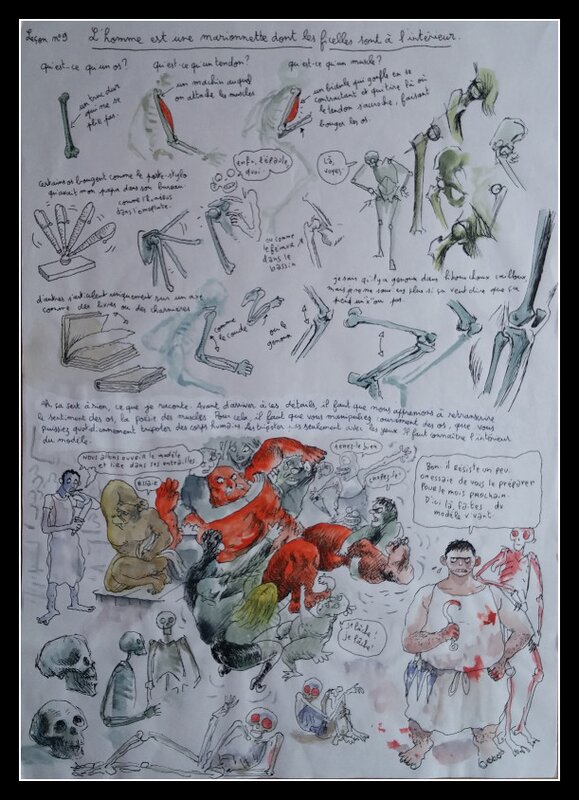 Leçon n°9 L'homme est une marionnette dont les ficelles sont à l'intérieur.
qu'est-ce qu'un os?
un truc dur
qui ne se
plie pas.
qu'est-ce qu'un tendon?
un machin auquel
on attache les muscles
qu'est-ce qu'un muscle?
un bidule qui gonfle en se
contractant et qui tire là où
le tendon s'accroche, faisant
bouger les os.
certains os bougent comme le porte-stylo
qu'avait mon papa dans son bureau.
comme l'humérus
dans l'omoplate.
enfin, l'épaule
quoi.
ou comme
le fémur
dans le
bassin
Là,
voyez
d'autres s'articulent uniquement sur un axe
comme des livres ou des charnières
comme
le coude
ou le
genou
je sais qu'il y a genoux dans hiboux choux cailloux
mais prend un
Ah ça sert à rien, ce que je raconte. Avant d'arriver à ces détails, il faut que nous apprenions à retranscrire
le sentiment des os, la poésie des muscles. Pour cela, il faut que vous manipuliez couramment des os, que vous
puissiez quotidiennement tripoter des corps humains. Les tripoter pas seulement avec les yeux. Il faut connaître l'intérieur
du modèle.
Nous allons ouvrir le modèle
et lire dans ses entrailles
tenez-le bien
Bon. il résiste un peu.
on essaie de vous le préparer
pour le mois prochain.
D'ici là, faites du
modèle vivant.
je lâche!
je lâche!